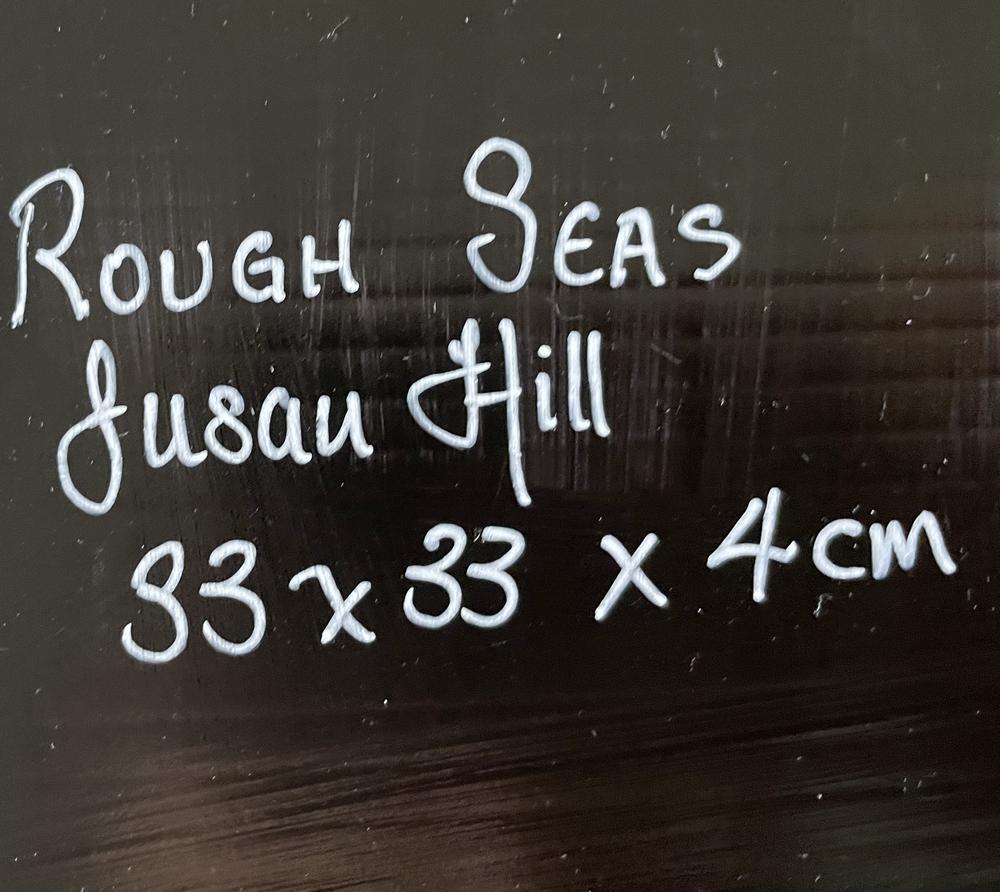 ROUGH SEAS
Susan Hill
33 x 33 x 4cm